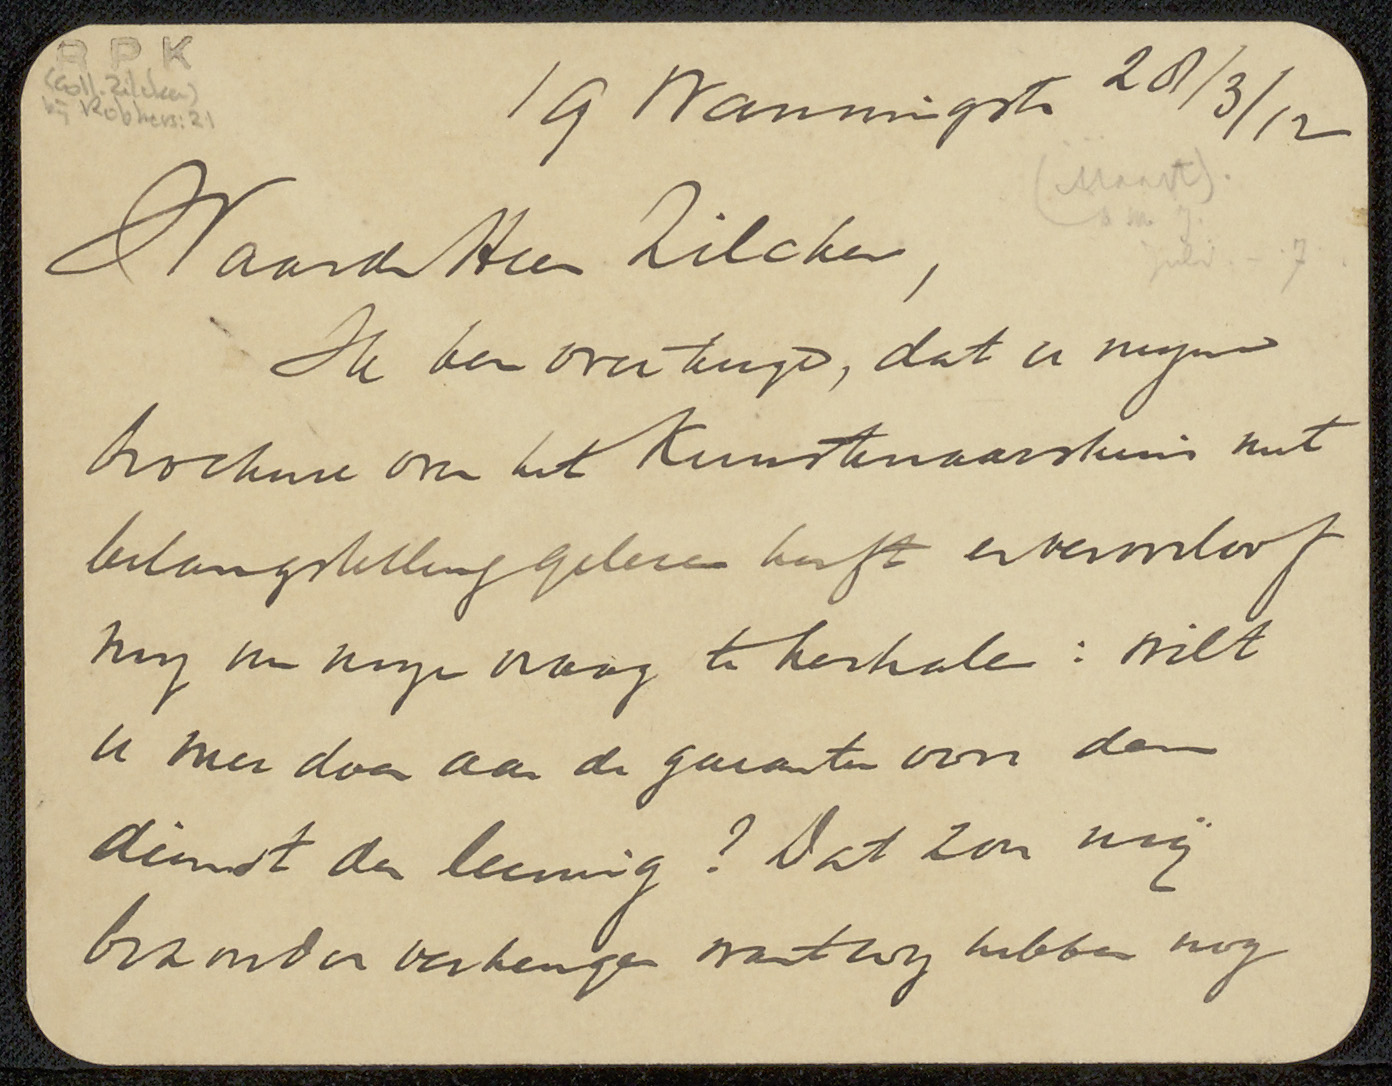 RPK
(Coll. Zilcken)
bij Robbers: 21
19 28/3/12
(Maart).
juli. - 7.
Waarde Heer Zilcken,
Ik ben overtuigd, dat u mijne
brochure over het Kunstenaarshuis met
belangstelling gelezen heeft en veroorloof
mij u mijn vraag te herhalen: wilt
u mee doen aan de garantie voor den
dienst der leening? Dat zou mij
bizonder verheugen want wij hebben nog